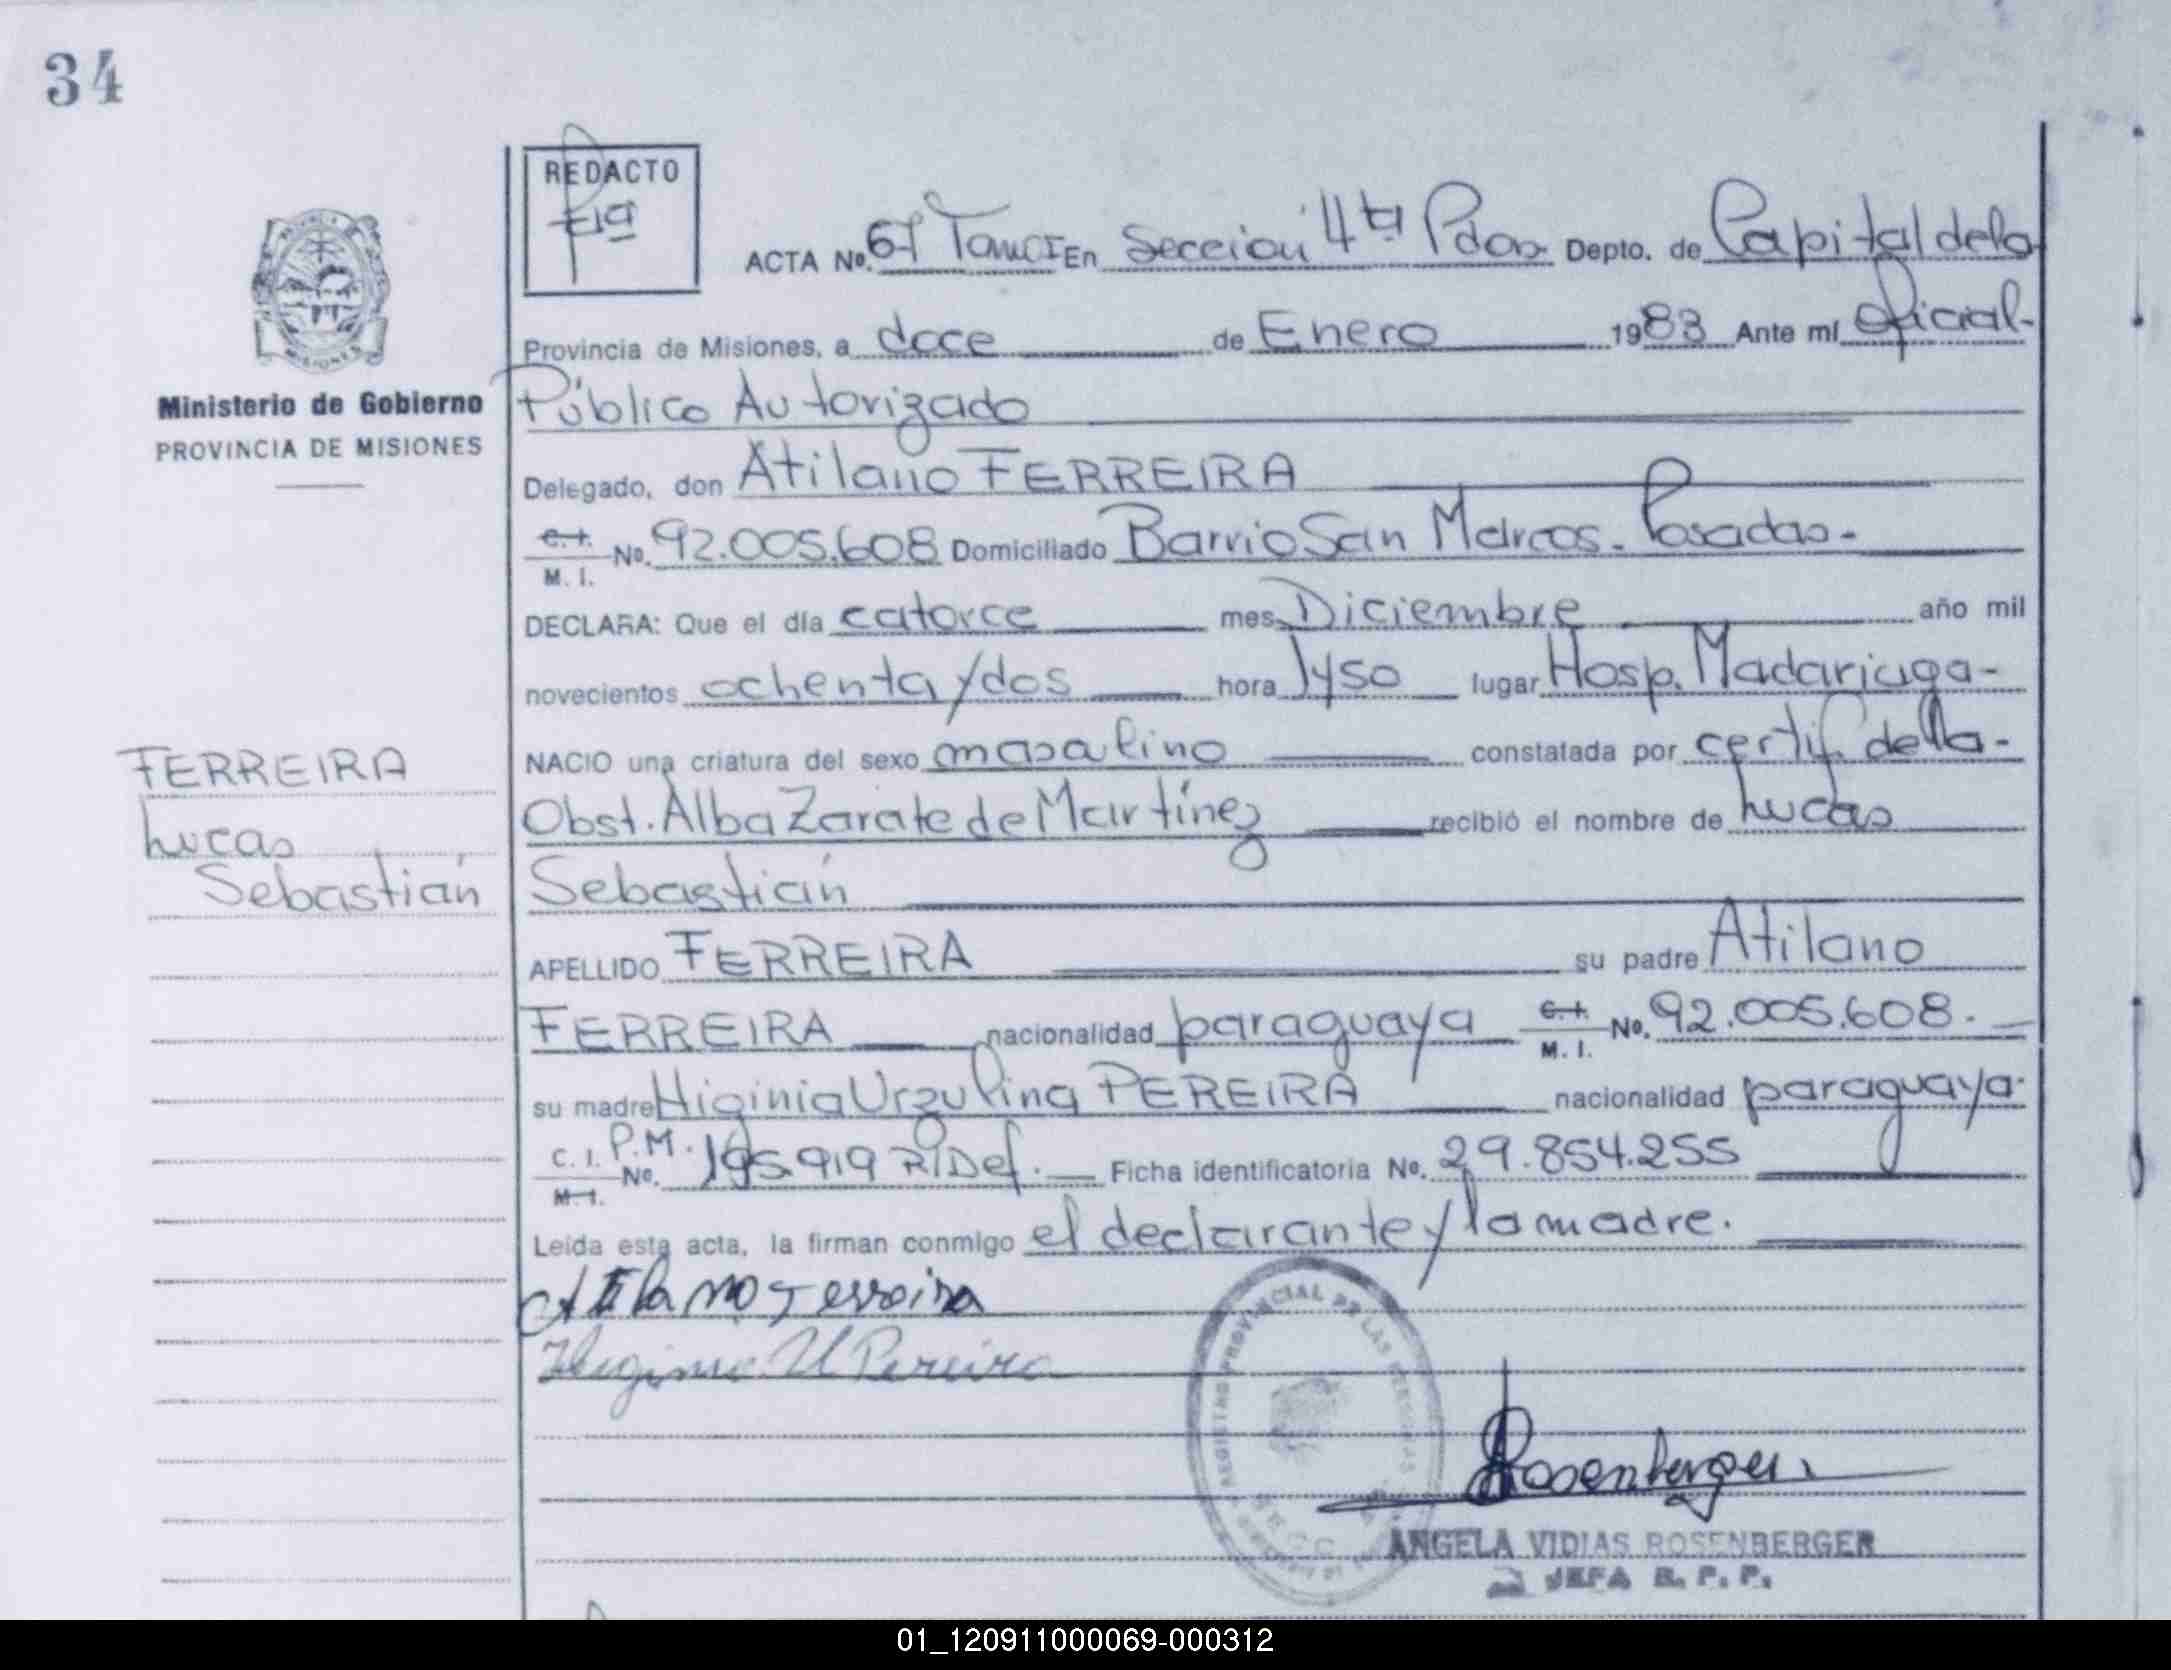 34
REDACTO
ACTA No. 67 Tomo I En Sección 4ta Pdas Depto. de Capital de la
Provincia de Misiones, a doce de Enero 1983 Ante mí Oficial
Ministerio de Gobierno
Público Autorizado
PROVINCIA DE MISIONES
Delegado, don Atilano FERREIRA
C. I. M. I. No. 92.005.608 Domiciliado Barrio San Marcos - Posadas -
DECLARA: Que el día catorce mes Diciembre año mil
novecientos ochenta y dos hora lugar Hosp. Madariaga -
NACIO una criatura del sexo masculino constatada por certif. de la -
FERREIRA
Obst. Alba Zarate de Martínez recibió el nombre de Lucas
Lucas
Sebastián
Sebastián
APELLIDO FERREIRA su padre Atilano
FERREIRA nacionalidad paraguaya C. I. M. I. No. 92.005.608.
su madre Higinia Urzulina PEREIRA nacionalidad paraguaya
C. I. M. I. P.M. No. 195.919 R/Def. Ficha identificatoria No. 29.854.255
Leída esta acta, la firman conmigo el declarante y la madre.
Atilano Ferreira
Higinia U Pereira
REGISTRO PROVINCIAL DE LAS PERSONAS
Rosenberger
ANGELA VIDIAS ROSENBERGER
JEFA R. P. P.
01_120911000069-000312